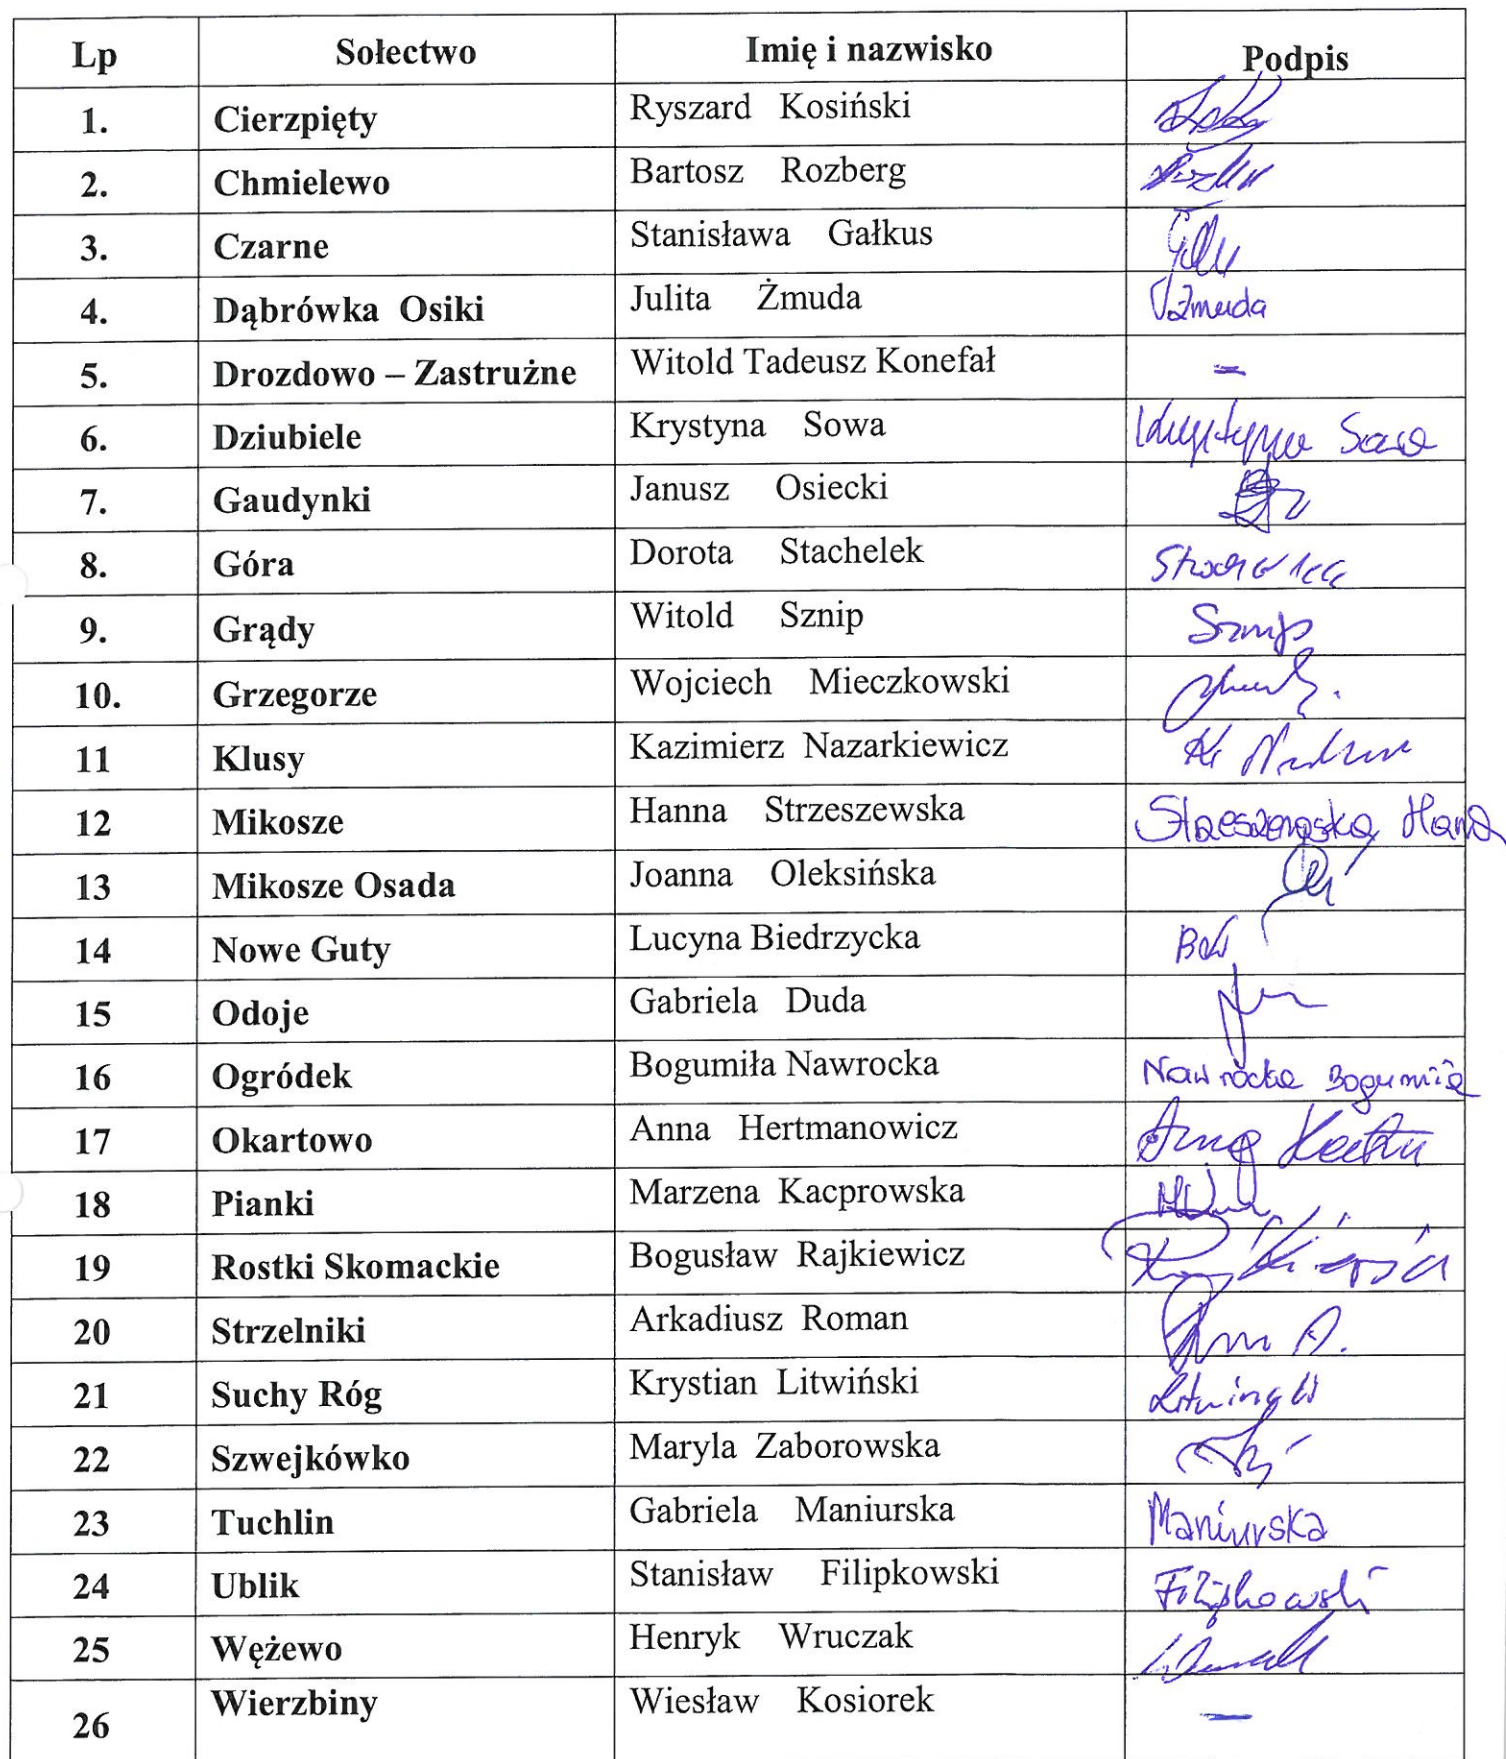 Lp Sołectwo Imię i nazwisko Podpis
1. Cierzpięty Ryszard Kosiński
2. Chmielewo Bartosz Rozberg
3. Czarne Stanisława Gałkus
4. Dąbrówka Osiki Julita Żmuda JŻmuda
5. Drozdowo – Zastrużne Witold Tadeusz Konefał –
6. Dziubiele Krystyna Sowa Krystyna Sowa
7. Gaudynki Janusz Osiecki
8. Góra Dorota Stachelek
9. Grądy Witold Sznip Sznip
10. Grzegorze Wojciech Mieczkowski
11 Klusy Kazimierz Nazarkiewicz
12 Mikosze Hanna Strzeszewska Strzeszewska Hanna
13 Mikosze Osada Joanna Oleksińska
14 Nowe Guty Lucyna Biedrzycka
15 Odoje Gabriela Duda
16 Ogródek Bogumiła Nawrocka Nawrocka Bogumiła
17 Okartowo Anna Hertmanowicz Anna
18 Pianki Marzena Kacprowska
19 Rostki Skomackie Bogusław Rajkiewicz
20 Strzelniki Arkadiusz Roman
21 Suchy Róg Krystian Litwiński
22 Szwejkówko Maryla Zaborowska
23 Tuchlin Gabriela Maniurska Maniurska
24 Ublik Stanisław Filipkowski Filipkowski
25 Wężewo Henryk Wruczak
26 Wierzbiny Wiesław Kosiorek –